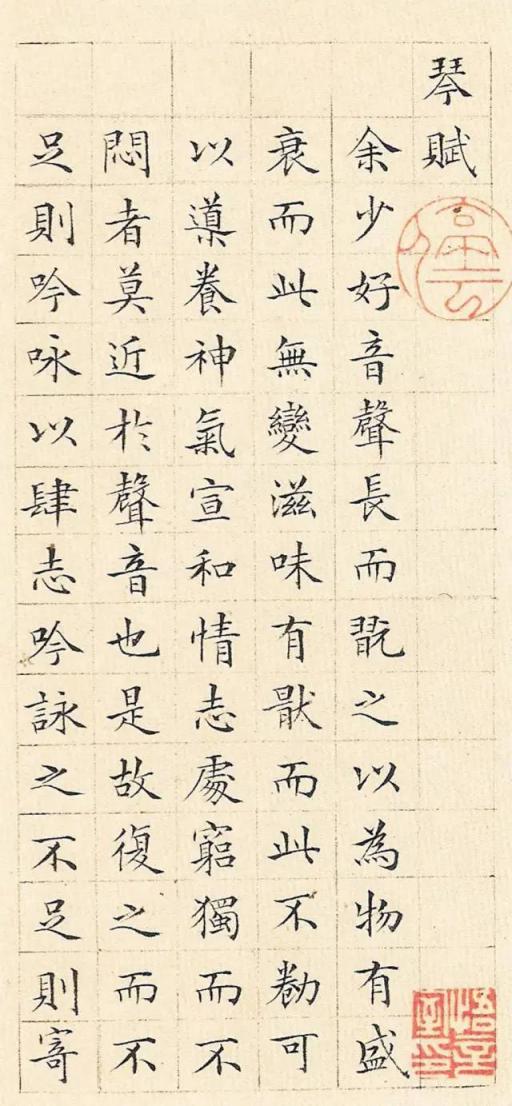 琴賦
停雲
悟言室印
余少好音聲長而翫之以為物有盛
衰而此無變滋味有猒而此不勌可
以導養神氣宣和情志處窮獨而不
悶者莫近於聲音也是故復之而不
足則吟咏以肆志吟詠之不足則寄